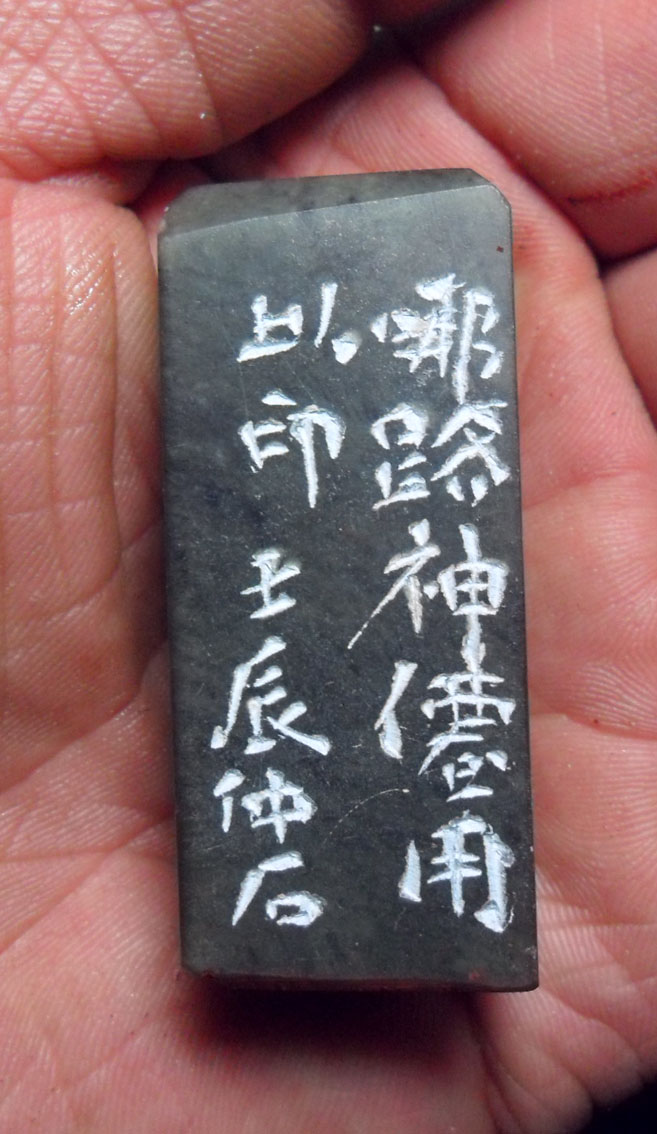 哪路神僊用
此印 壬辰仲石